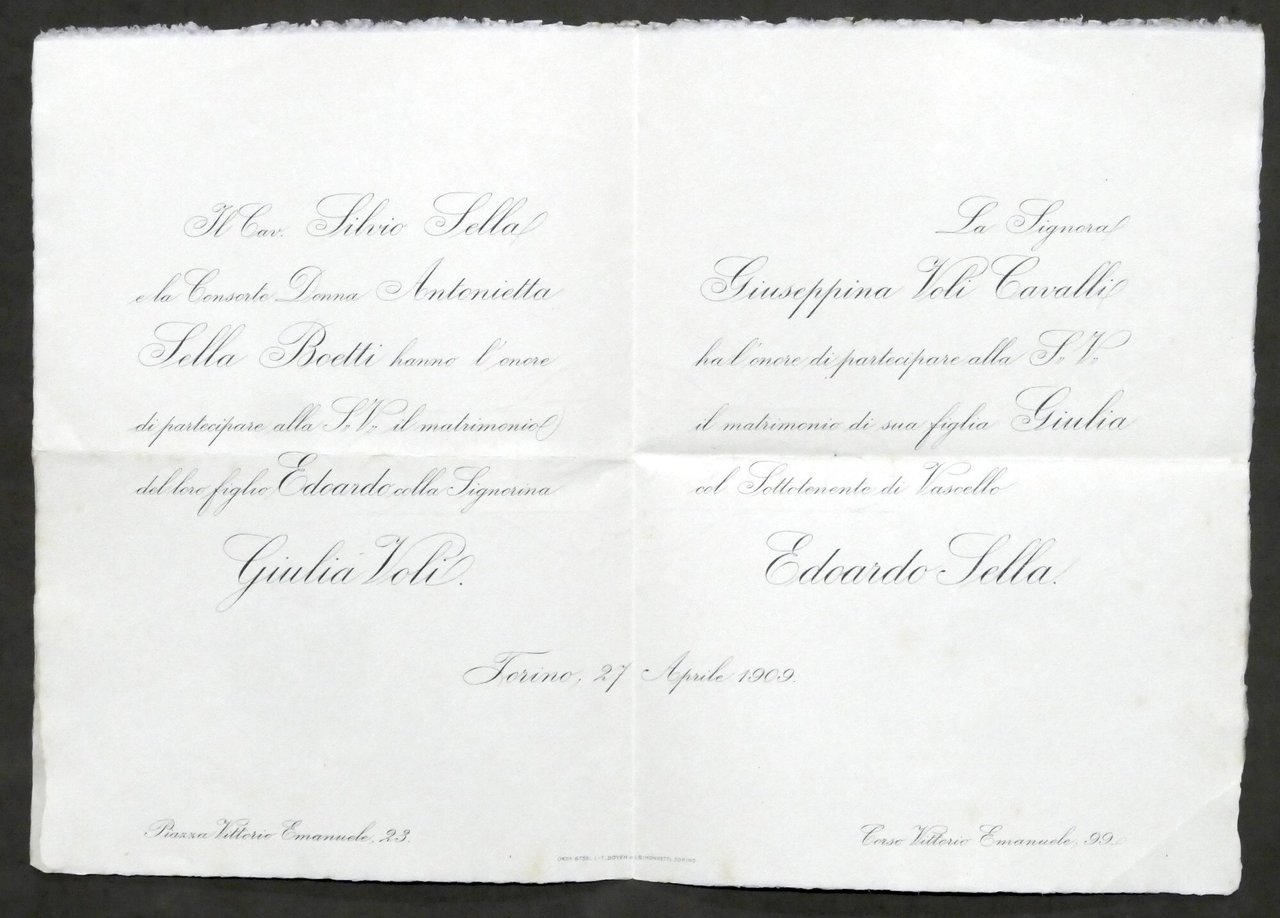 Il Cav. Silvio Sella
e la Consorte Donna Antonietta
Sella Boetti hanno l'onore
di partecipare alla S. V. il matrimonio
del loro figlio Edoardo colla Signorina
Giulia Voli.
La Signora
Giuseppina Voli Cavalli
ha l'onore di partecipare alla S. V.
il matrimonio di sua figlia Giulia
col Sottotenente di Vascello
Edoardo Sella.
Torino, 27 Aprile 1909.
Piazza Vittorio Emanuele, 23.
Corso Vittorio Emanuele, 99.
LIT. DOYEN SIMONDETTI, TORINO